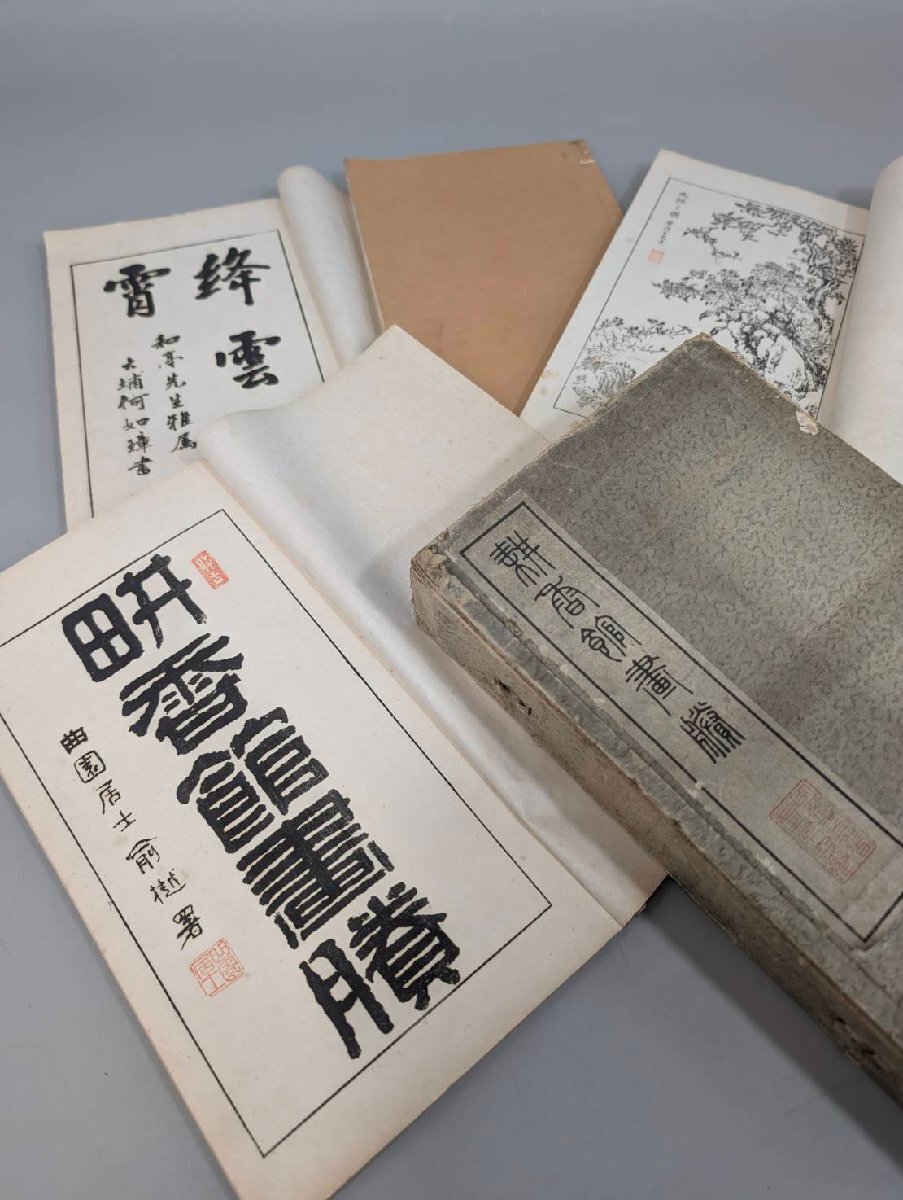 絳雲
霄
和亭先生雅属
大埔何如璋書
畊香館畫賸
曲園居士俞樾署
耕香館畫賸